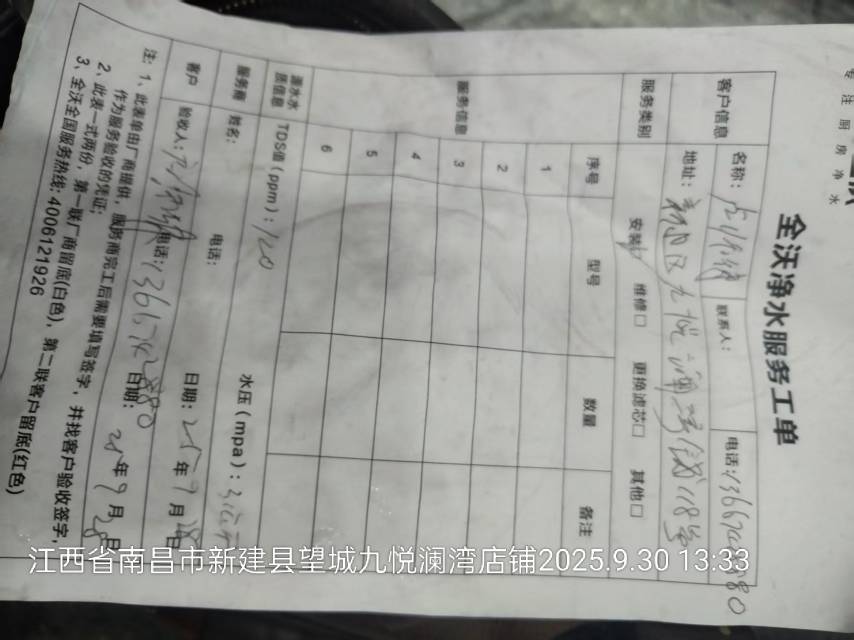 专注厨房净水
全沃净水服务工单
客户信息 名称: 联系人: 电话:
地址: 新建区九悦澜湾店铺118号
服务类别 安装 维修□ 更换滤芯□ 其他□
服务信息 序号 型号 数量 备注
1
2
3
4
5
6
源水水质信息 TDS值(ppm): 120 水压(mpa):
服务商 姓名: 电话: 日期: 25年9月28
客户 验收人: 电话: 日期: 25年9月28日
注: 1、此表单由厂商提供, 服务商完工后需要填写签字, 并找客户验收签字,
作为服务验收的凭证;
2、此表一式两份, 第一联厂商留底(白色)、第二联客户留底(红色)
3、全沃全国服务热线: 4006121926
江西省南昌市新建县望城九悦澜湾店铺2025.9.30 13:33